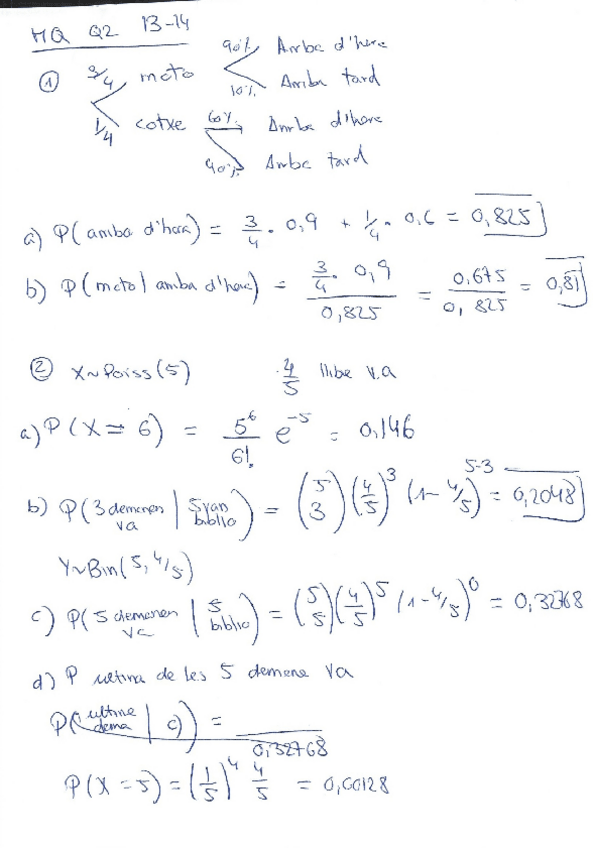 MQ Q2 13-14
① 3/4 moto 90% Arriba d'hora
10% Arriba tard
1/4 cotxe 60% Arriba d'hora
40% Arriba tard
a) P(arriba d'hora) = 3/4 · 0,9 + 1/4 · 0,6 = 0,825
b) P(moto | arriba d'hora) = (3/4 · 0,9)/0,825 = 0,675/0,825 = 0,81
② X~Poiss(5) 4/5 llibre v.a
a) P(X = 6) = 5^6/6! e^-5 = 0,146
b) P(3 demanen va | 5 van biblio) = (5 3)(4/5)^3 (1-4/5)^5-3 = 0,2048
Y~Bin(5, 4/5)
c) P(5 demanen va | 5 biblio) = (5 5)(4/5)^5 (1-4/5)^0 = 0,32768
d) P ultima de les 5 demana va
P(ultima dema | c)) = /0,32768
P(X = 5) = (1/5)^4 4/5 = 0,00128